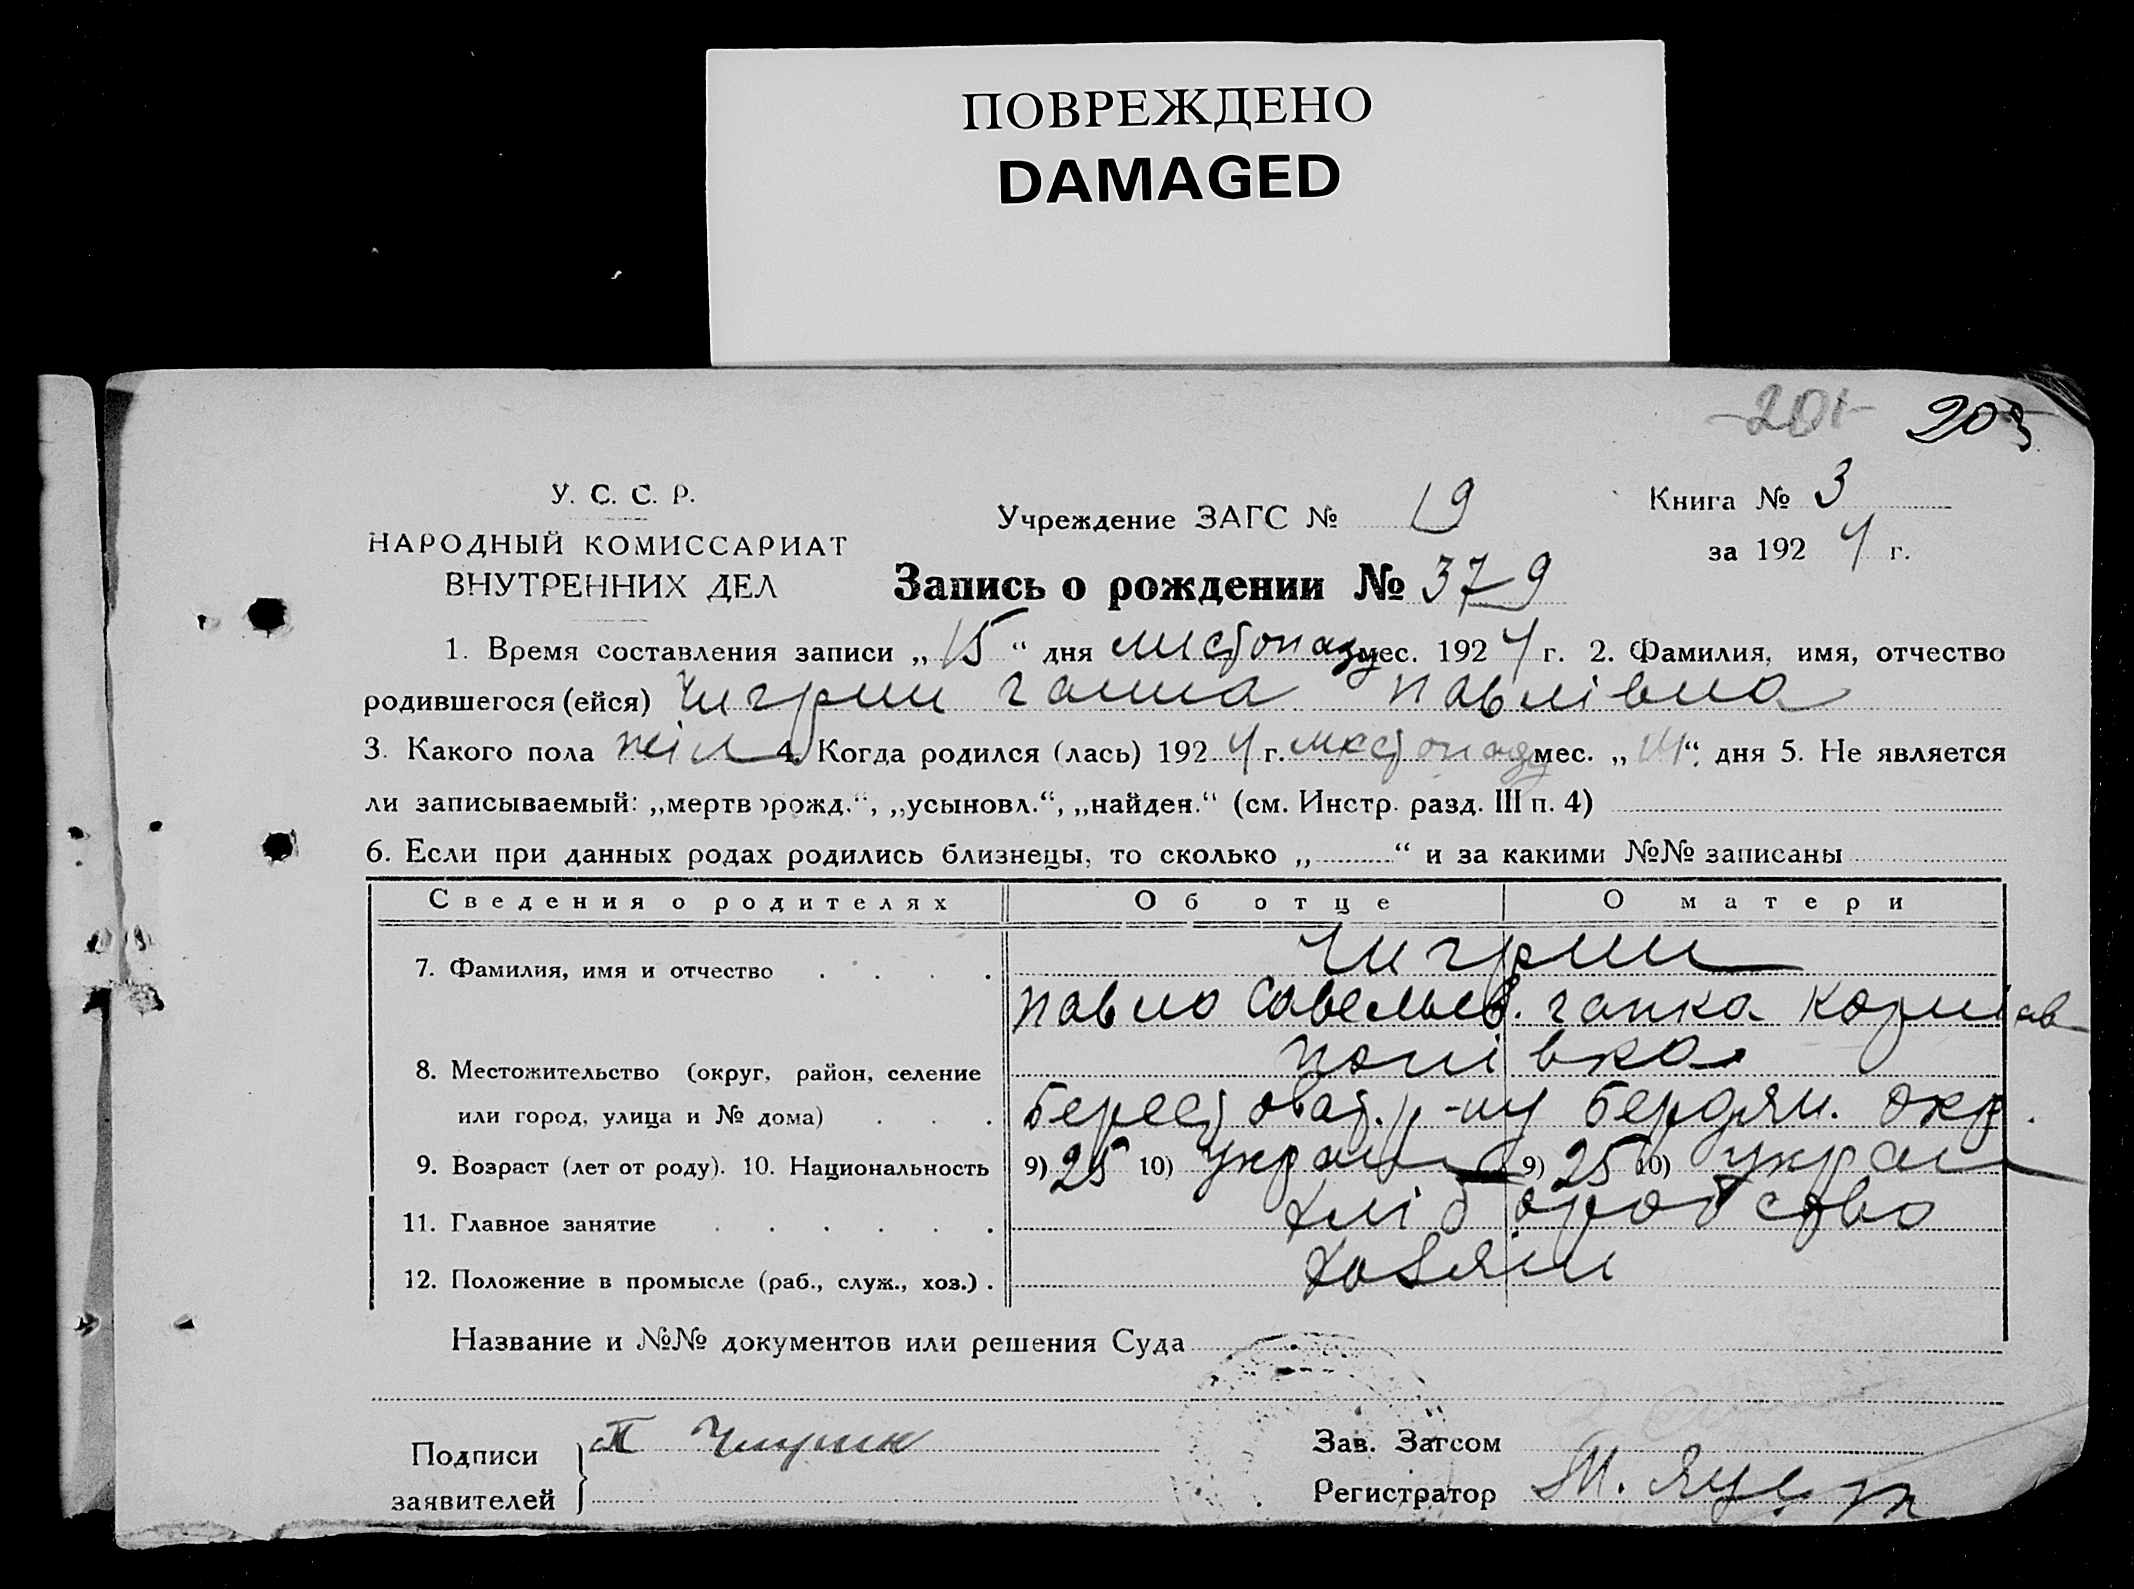 ПОВРЕЖДЕНО
DAMAGED
-201- 203
У. С. С. Р.
НАРОДНЫЙ КОМИССАРИАТ
ВНУТРЕННИХ ДЕЛ
Учреждение ЗАГС № 19
Книга № 3
за 1924 г.
Запись о рождении № 379
1. Время составления записи „15“ дня листопаду мес. 1924 г. 2. Фамилия, имя, отчество
родившегося (ейся) Чигрин Ганна Павлівна
3. Какого пола жін 4. Когда родился (лась) 1924 г. листопаду мес. „14“ дня 5. Не является
ли записываемый: „мертворожд.“, „усыновл.“, „найден.“ (см. Инстр. разд. III п. 4)
6. Если при данных родах родились близнецы, то сколько „ “ и за какими №№ записаны
Сведения о родителях Об отце О матери
7. Фамилия, имя и отчество Чигрин
Павло Савельев. Гапка Корнієв
8. Местожительство (округ, район, селение Попівка
или город, улица и № дома) Берестоват. р-ну Бердян. окр.
9. Возраст (лет от роду). 10. Национальность 9) 25 10) украин 9) 25 10) украин
11. Главное занятие хліборобство
12. Положение в промысле (раб., служ., хоз.) хозяін
Название и №№ документов или решения Суда
Подписи П Чигрин
заявителей
Зав. Загсом
Регистратор М.